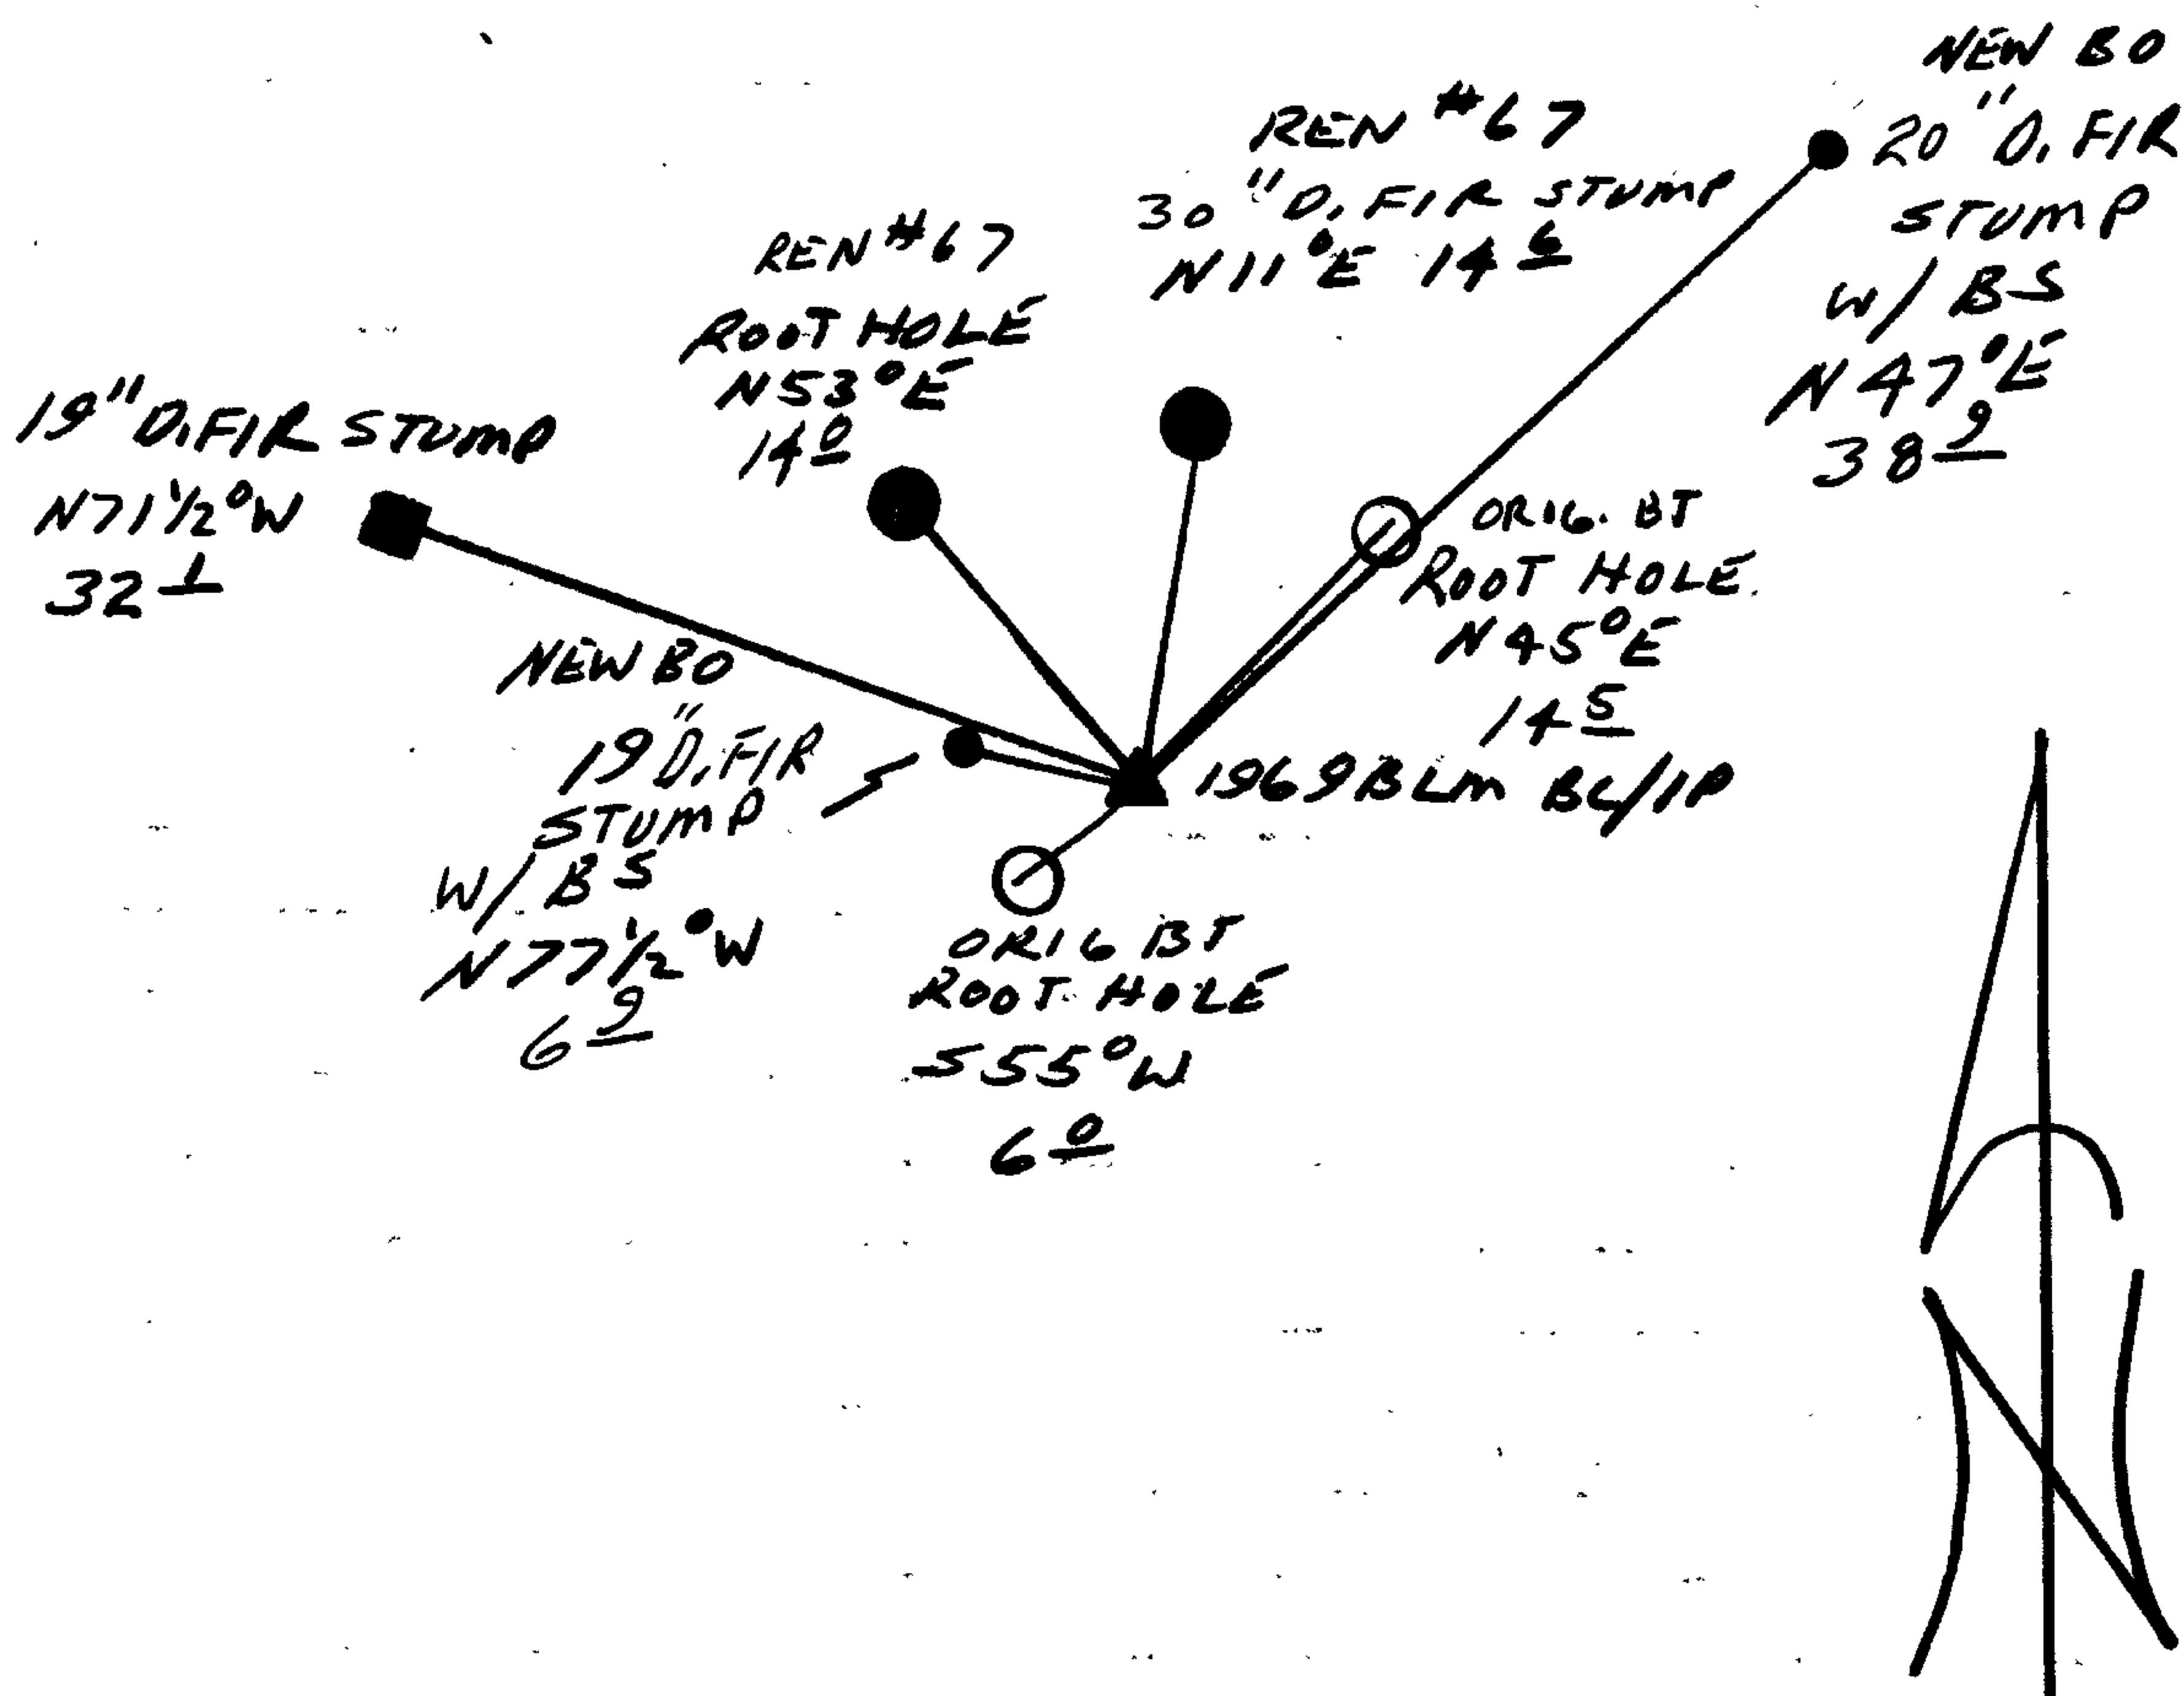 NEW BO
20" D. FIR
STUMP
W/ BS
N47°E
38 9
REN #67
30" D. FIR STUMP
N11°E 14 6
REN #67
ROOT HOLE
N53°E
14 0
19" D. FIR STUMP
N71 1/2°W
32 1
ORIG. BT
ROOT HOLE
N45°E
14 5
NEW BO
19" D. FIR
STUMP
W/ BS
N77 1/2°W
6 9
1969 BLM BC/IP
ORIG BT
ROOT HOLE
S55°W
6 0
N